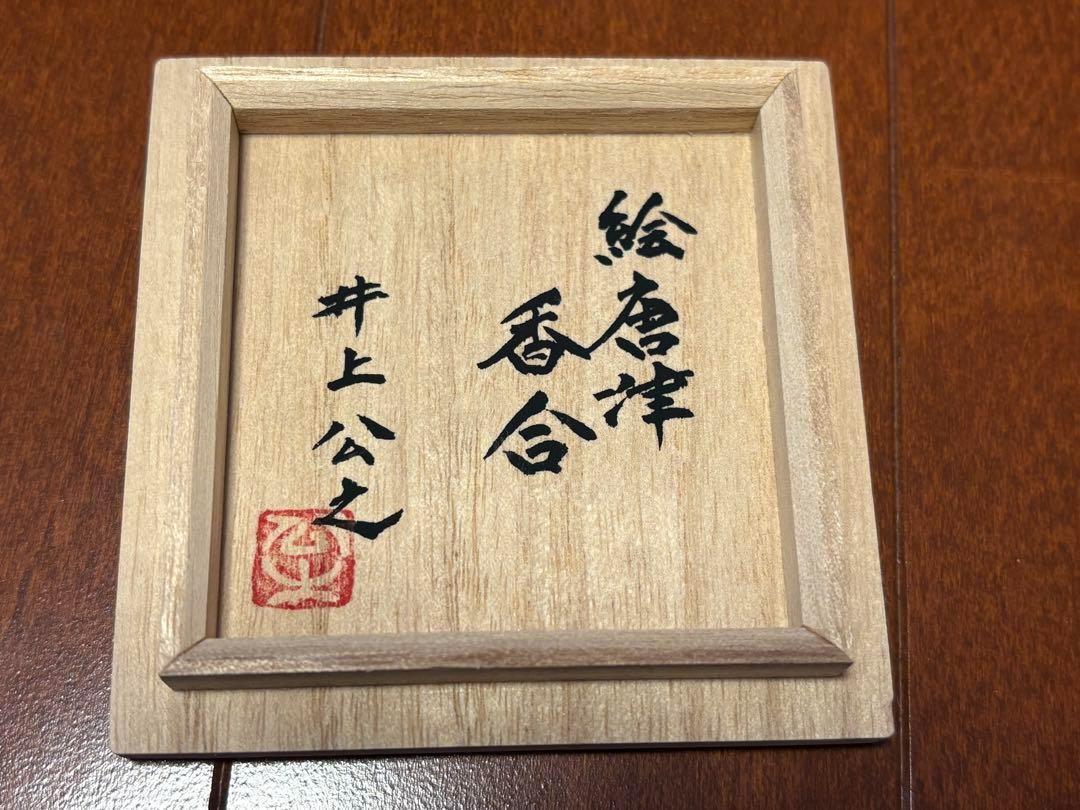 絵唐津
香合
井上公之